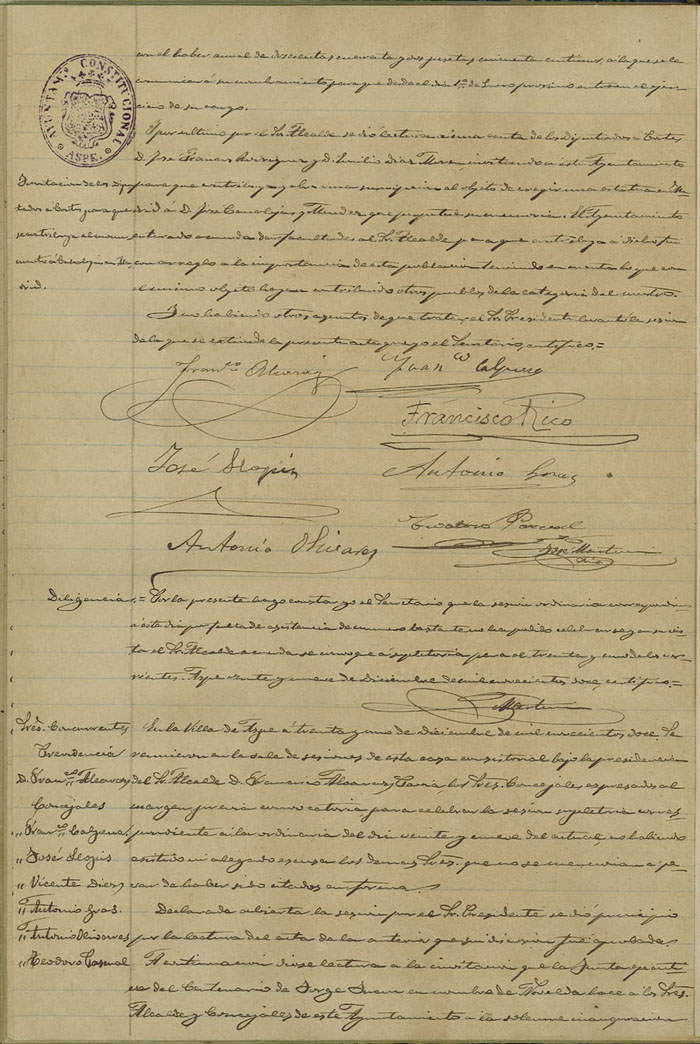 AYUNTAM.º CONSTITUCIONAL
ASPE.
con el haber anual de doscientas cuarenta y dos pesetas cincuenta céntimos, a la que se le
comunicará su nombramiento para que desde el dia 1º de Enero próximo entre en el ejer-
cicio de su cargo.
Y por ultimo por el Sr. Alcalde se dió lectura a una carta de los Diputados a Cortes
D. José Francos Rodriguez y D. Emilio Diaz Moreu, invitando a este Ayuntamiento
para que contribuya y abra una suscripcion al objeto de erigir una estatua en Ma-
drid á D. José Canalejas y Mendez que perpetue su memoria. El Ayuntamiento
enterado acuerda dar facultades al Sr. Alcalde para que contribuya á dicho fin
con arreglo a la importancia de esta poblacion teniendo en cuenta lo que con
el mismo objeto hayan contribuido otros pueblos de la categoria del nuestro.
Invitacion de los Dipu-
tados a Cortes para que
se contribuya al monu-
mento á Canalejas en Ma-
drid.
Y no habiendo otros asuntos de que tratar, el Sr. Presidente levantó la sesion
de la que se extiende la presente acta que yo el Secretario, certifico.=
Franco Alvarez
Juan Calpena
Francisco Rico
José Llopis
Antonio Gras
Antonio Olivares
Teodoro Pascual
José Martinez
Diligencia.= Por la presente hago constar yo el Secretario que la sesion ordinaria correspondien-
á este dia por falta de asistencia de numero bastante no ha podido celebrarse y en su vis-
ta el Sr. Alcalde acuerda se convoque á supletoria para el treinta y uno de los cor-
rientes. Aspe veinte y nueve de Diciembre de mil novecientos doce, certifico.=
Martinez
Sres. Concurrentes
Presidencia
D. Franco Alvarez
Concejales
" Franco Calpena
" José Llopis
" Vicente Diez
" Antonio Gras.
" Antonio Olivares
" Teodoro Pascual
En la Villa de Aspe á treinta y uno de diciembre de mil novecientos doce. Se
reunieron en la sala de sesiones de esta casa consistorial bajo la presidencia
del Sr. Alcalde D. Francisco Alvarez los Sres. Concejales expresados al
margen, previa convocatoria, para celebrar la sesion supletoria corres-
pondiente á la ordinaria del dia veinte y nueve del actual, no habiendo
asistido ni alegado escusa los demas Sres. que no se mencionan a pe-
sar de haber sido citados en forma.
Declarada abierta la sesion por el Sr. Presidente se dió principio
por la lectura del acta de la anterior que sin discusion fué aprobada.
A continuacion dióse lectura a la invitacion que la Junta
del Centenario de Jorge Juan en nombre de Novelda hace a los Sres.
Alcalde y Concejales de este Ayuntamiento a la solemne inauguracion